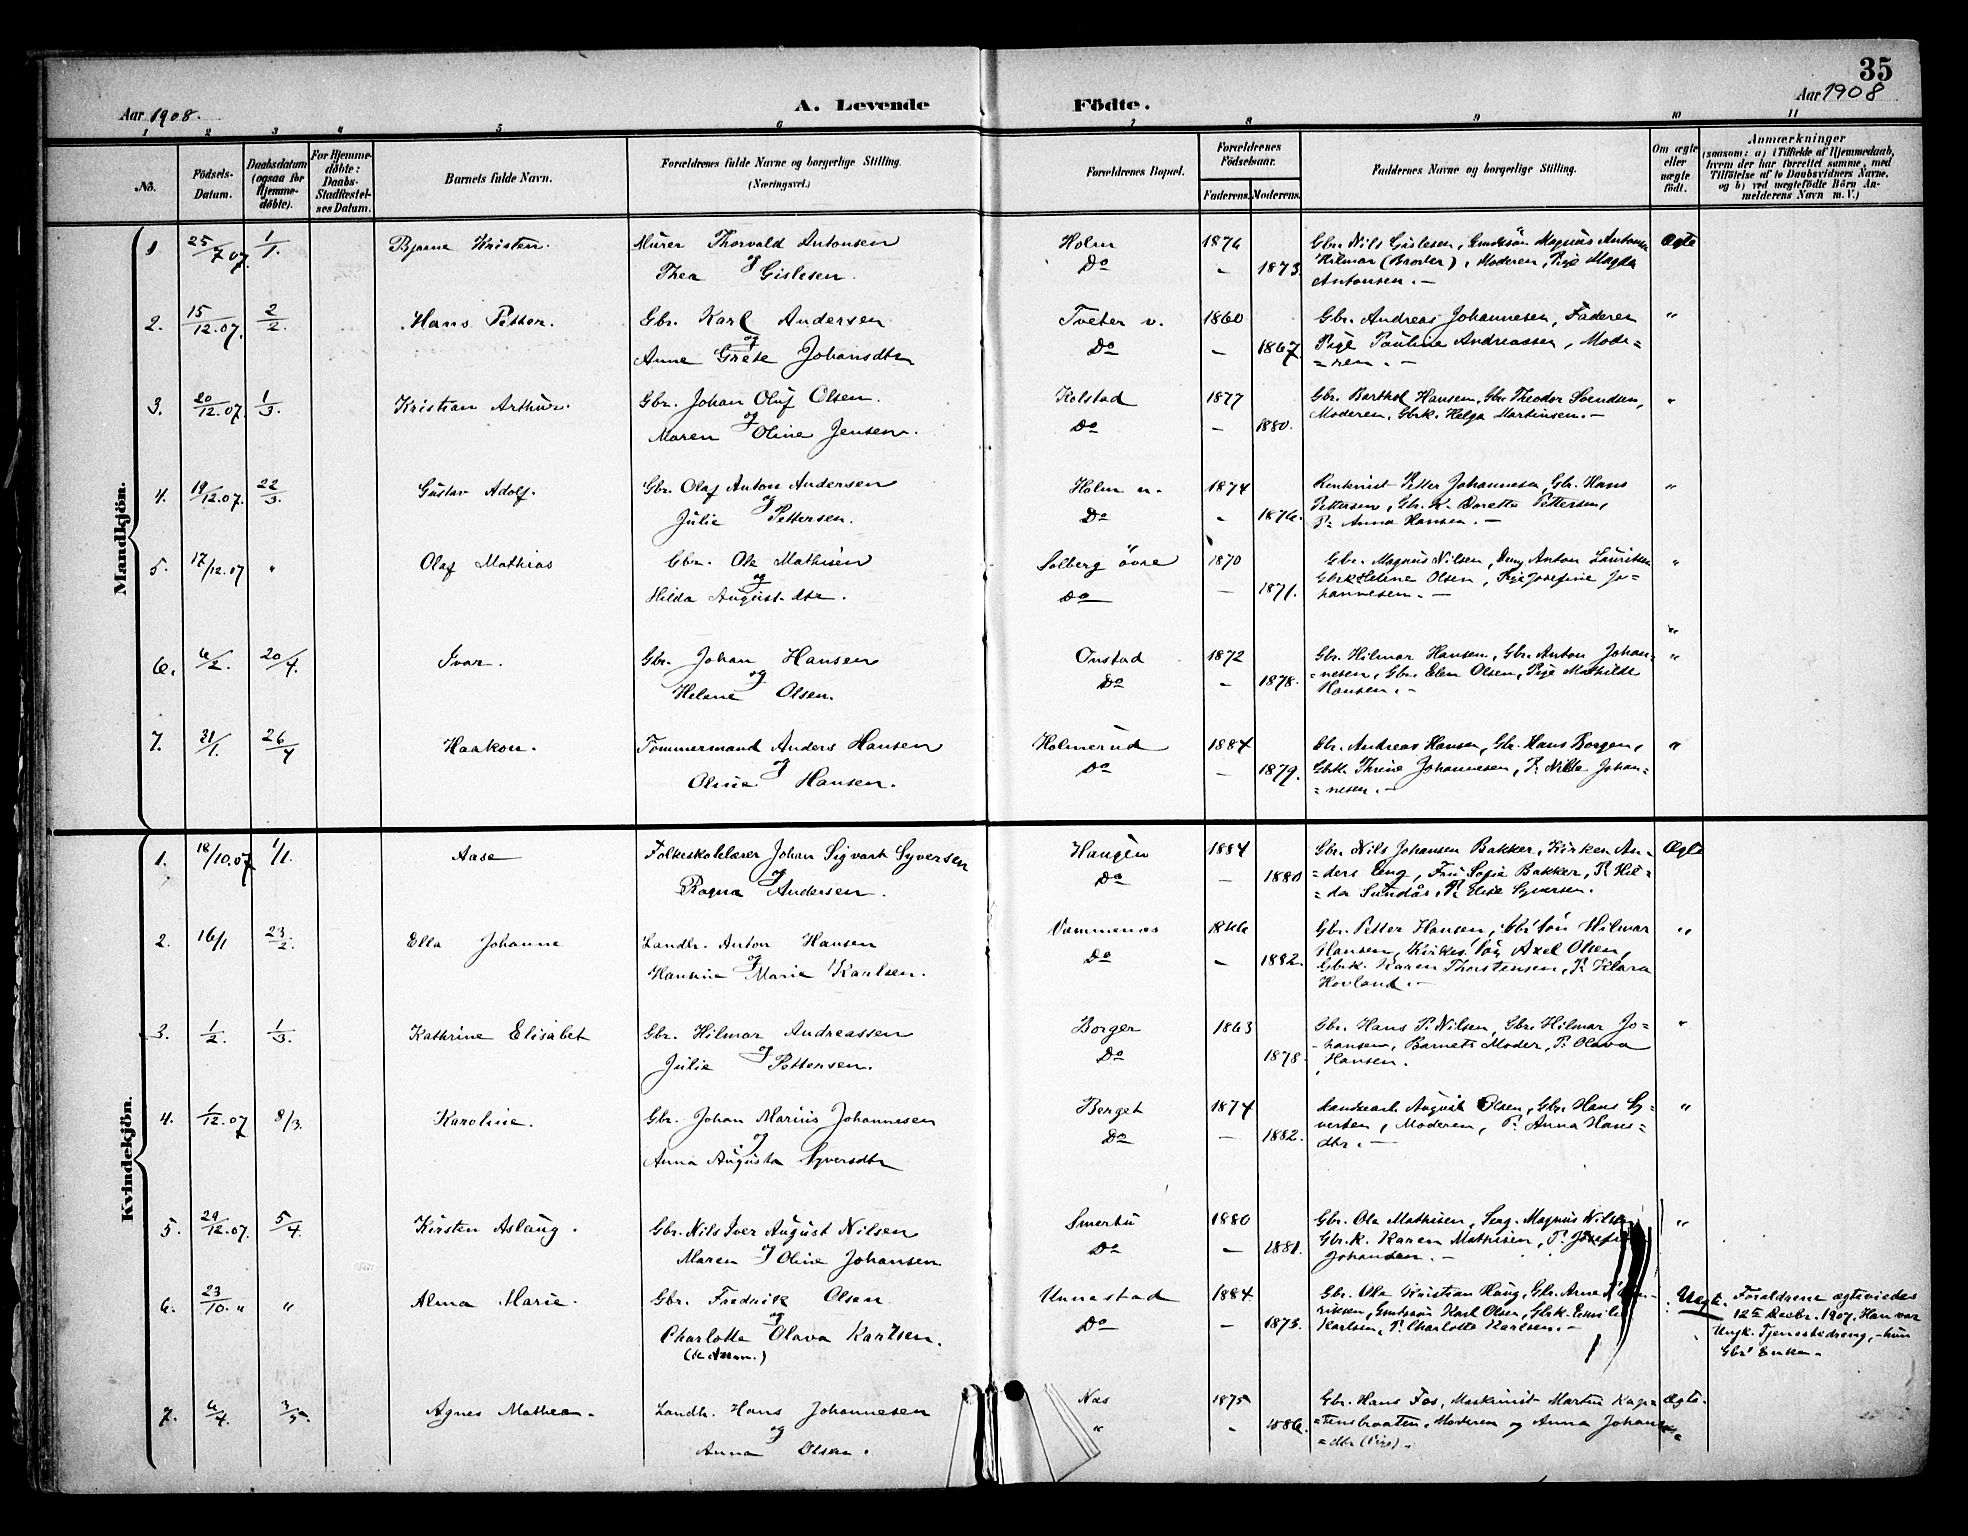 35
Aar 1908.
A. Levende Födte.
Aar 1908
1 2 3 4 5 6 7 8 9 10 11
No.
Födsels-Datum.
Daabsdatum (ogsaa for Hjemme-döbte).
For Hjemme-döbte: Daabs-Stadfæstel-ses Datum.
Barnets fulde Navn.
Forældrenes fulde Navne og borgerlige Stilling. (Næringsvei.)
Forældrenes Bopæl.
Forældrenes Födselsaar.
Faderens. Moderens.
Faddernes Navne og borgerlige Stilling.
Om ægte eller uægte födt.
Anmærkninger
(saasom: a) i Tilfælde af Hjemmedaab, hvem der har forrettet samme, med Tilföielse af to Daabsvidners Navne, og b) ved uægtefödte Börn An-melderens Navn m. V.)
Mandkjön.
1. 25/7 07. 1/1. Bjarne Kristen. Murer Thorvald Antonsen Holm 1876 Gbr. Nils Gislesen, Magnus Antonsen Ægte
og Thea Gislesen. Do – 1873. Hilmar (Broder), Moderen, Pige Magda
Antonsen. –
2. 15/12.07. 2/2. Hans Petter. Gbr. Karl Andersen Tveter v. 1860 Gbr. Andreas Johannesen, Faderen "
og Anne Grete Johansdtr Do – 1867. Pige Pauline Andreassen, Mode=
=ren. –
3. 20/12.07. 1/3. Kristian Arthur. Gbr. Johan Oluf Olsen. Kolstad 1877 Gbr. Barthol Hansen, Gbr. Theodor Svendsen, "
og Maren Oline Jensen. Do – 1880. Moderen, Gbrk. Helga Martinsen. –
4. 19/12.07. 22/3. Gustav Adolf. Gbr. Olaf Anton Andersen Holm n. 1874 Petter Johannesen, Gbr. Hans "
og Julie Pettersen. Do – 1876. Pettersen, Gbr. K. Dorette Pettersen,
P. Anna Hansen. –
5. 17/12.07 " Olaf Mathias Gbr. Ole Mathisen Solberg övre 1870 Gbr. Magnus Nilsen, Anton Lauritsen "
og Hilda August.dtr. Do – 1871. Gbrk Helene Olsen, Pige Josefine Jo-
hannesen. –
"
6. 6/2. 20/4. Ivar. Gbr. Johan Hansen Onstad 1872 Gbr. Hilmar Hansen, Gbr. Anton Johan= "
og Helene Olsen. Do – 1878. =nesen, Gbr. Elen Olsen, Pige Mathilde
Hansen. –
7. 31/1. 26/4 Haakon. Tømmermand Anders Hansen Holmerud 1884 Gbr. Andreas Hansen, Gbr. Hans Borgen, "
og Oline Hansen. Do – 1879. Gbrk. Thrine Johannesen, P. Johan=
=nesen. –
Kvindekjön.
1. 18/10.07 1/1. Aase Folkeskolelærer Johan Sigvart Syversen Haugen 1884 Gbr. Nils Johansen Bakker, An= Ægte
og Ragna Andersen. Do – 1880 =ders Eng, Fru Sofie Bakker, P. Hil=
=da Sundår, P. Elise Syversen.
2. 16/1 23/2. Ella Johanne Landh. Anton Hansen Vammenæs Gbr. Petter Hansen, Gbr. Søn Hilmar "
og Hansine Marie Karlsen. Do – 1882. Hansen, Søn Axel Olsen,
Gbrk. Karen Thorstensen, P. Klara
Hovland. –
3. 1/2. 1/3. Kathrine Elisabet Gbr. Hilmar Andreassen Borger 1863 Gbr. Hans P. Nilsen, Gbr. Hilmar Jo= "
og Julie Pettersen. Do 1878. =hansen, Barnets Moder, P. Olava
Hansen.
4. 1/12.07 8/3. Karoline. Gbr. Johan Marius Johannesen Berget 1874 August Olsen, Gbr. Hans Sy= "
og Anna Augusta Syversdtr Do – 1882. versen, Moderen, P. Anna Hans=
dtr. –
5. 29/12.07. 5/4. Kirsten Aslaug. Gbr. Nils Iver August Nilsen Smertu 1880 Gbr. Ole Mathisen, Serg. Magnus Nilsen "
og Maren Oline Johansen Do – 1881. Gbr. K. Karen Mathisen, P.
Johansen. –
6. 23/10. " " Alma Marie. Gbr. Fredrik Olsen Unnestad 1884. Gbr. Ole Kristian Haug, Gbr. Arne Uegt. Forældrene ægteviedes
og Charlotte Olava Karlsen. Do – 1873. riksen, Karl Olsen, Gbrk. 12te Decbr. 1907. Han var
Karlsen, P. Charlotte Karlsen. – Ungk. Tjenestedreng, – hun
Gbr. Enke. –
7. 6/4. 3/5. Agnes Mathea. Landh. Hans Johannesen Nas 1875 Gbr. Hans Fos, Maskinist Martin Ægte.
og Anna Olsen. " – 1886. Moderen og Anna Johan
=dtr (Pige).